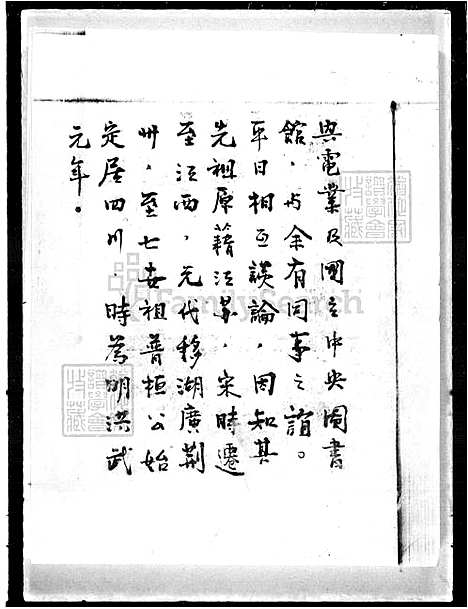 與電業及國立中央圖書
館，与余有同事之誼。
平日相互談論，因知其
先祖原籍江蘇，宋時遷
至江西，元代移湖廣荆
州，至七世祖普桓公始
定居四川，時為明洪武
元年。
FamilySearch